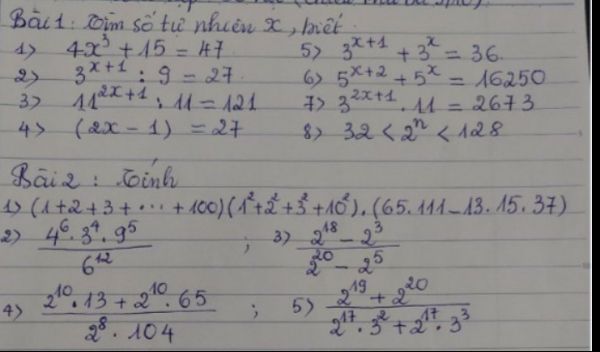 Bài 1: Tìm số tự nhiên x, biết
1) 4x³ + 15 = 47 5) 3^(x+1) + 3^x = 36.
2) 3^(x+1) : 9 = 27 6) 5^(x+2) + 5^x = 16250
3) 11^(2x+1) : 11 = 121 7) 3^(2x+1) . 11 = 2673
4) (2x – 1) = 27 8) 32 < 2ⁿ < 128
Bài 2: Tính
1) (1+2+3+ ... +100)(1²+2²+3²+10²).(65.111–13.15.37)
2) (4⁶ . 3⁴ . 9⁵)/(6¹²) ; 3) (2¹⁸ – 2³)/(2²⁰ – 2⁵)
4) (2¹⁰ . 13 + 2¹⁰ . 65)/(2⁸ . 104) ; 5) (2¹⁹ + 2²⁰)/(2¹⁷ . 3² + 2¹⁷ . 3³)